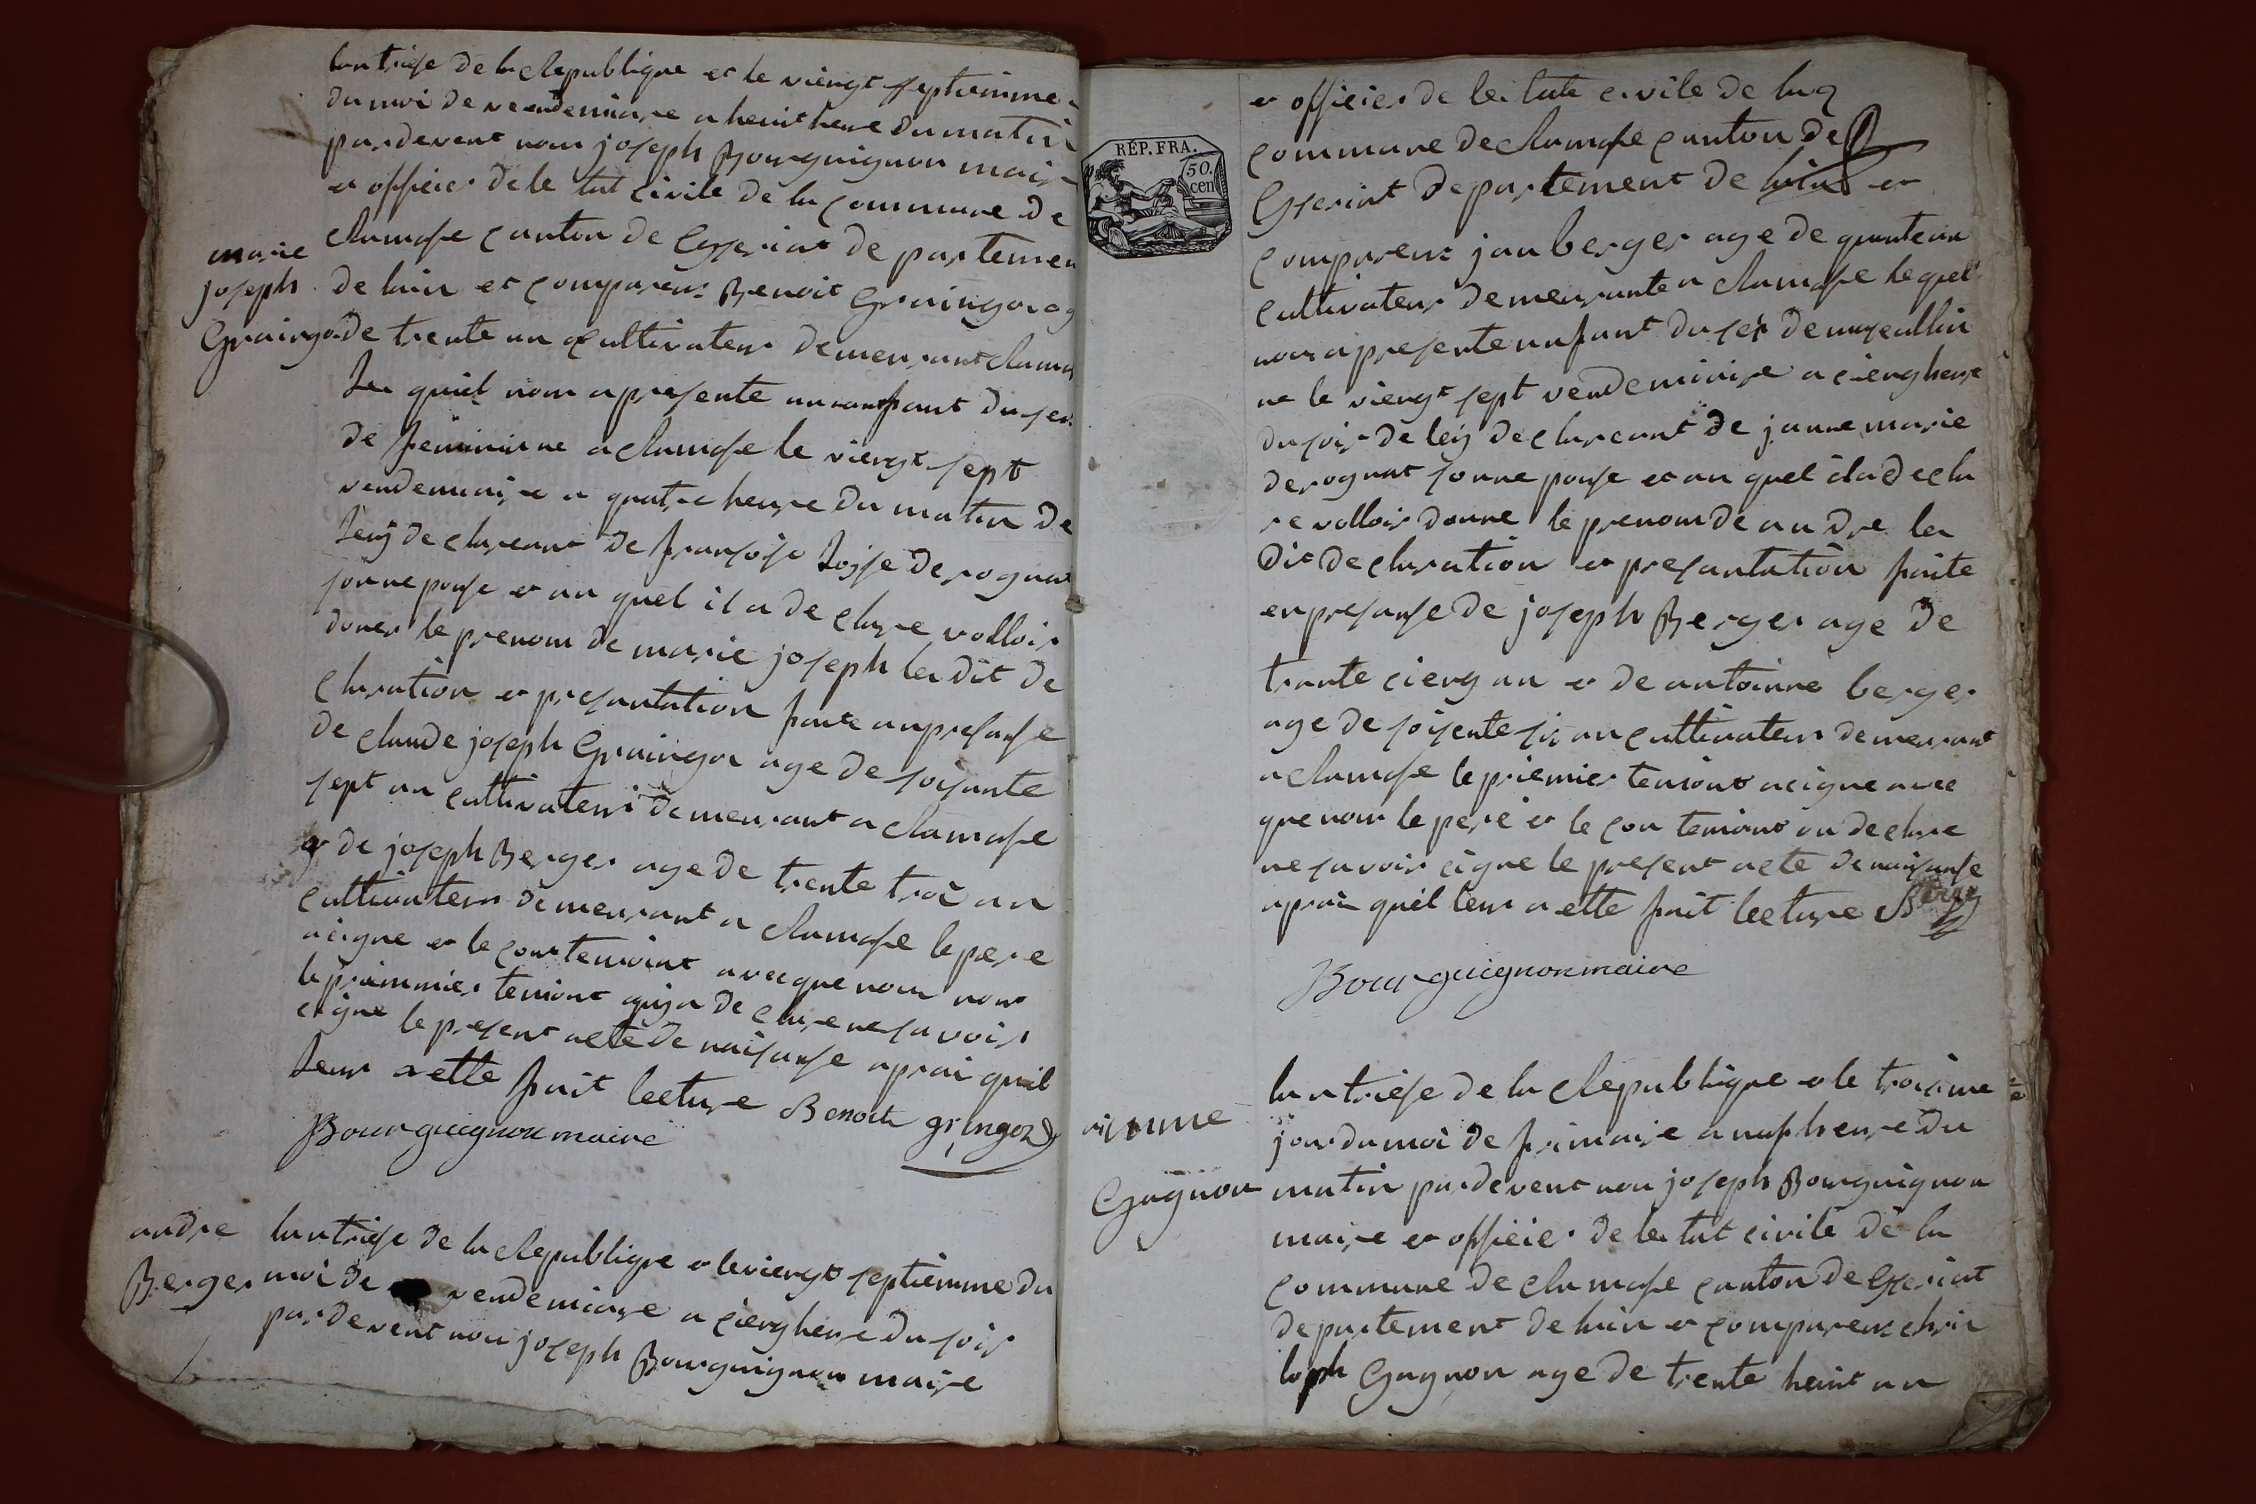 lan treise de la Republique et le viengt septiemme
du moi de vendemiare a heuit heure du matin
pardevent nous joseph Bourguignon mair
et officier de le tat civile de la commune de
clamose canton de Ceyseriat de partemen
marie
joseph
Graingo
de lain et comparens Benoit Graingor ag
de trente un cultivateur demeurant clamo
le quiel nous a presente un anfant du sex
de feminin ne a clamose le viengt sept
vendemiaire a quatre heure du matin de
leuy declareant de fransoise Josse derognat
sonne pouse et au quel il a declare volloir
doner le prenom de marie joseph la dit de
claration et presantation faite anpresanse
de claude joseph Graingor age de soisante
sept an cultivateur demeurant a clamose
et de joseph Berger age de trente troi an
cultivateur demeurant a clamose le pere
a cigne et le contemoint avecque nous nons
le priemmier temoint qui a de clare ne savoir
cigne le present acte de naisanse aprai quil
leur a ette fait lecture Benoit gringoz
Bourguignon maire
andre
Berger
lan treise de la Republique et le viengt septiemme du
moi de vendemiare a cieng heure du soir
pardevent nou joseph Bourguignon maire
RÉP. FRA.
50.
cen
et officier de le tate civile de la
commune de clamose canton de
Ceyseriat departement de lain et
comparens jan berger age de quarante an
cultivateur demeurante a clamose le quel
nous a presente unfant du sex de masculin
ne le viengt sept vendemiaire a cieng heure
du soir de leiy declareant de janne marie
derognat sonne pouse et au quel il a decla
re volloir donne le prenom de andre la
dit declaration et presantation faite
en presanse de joseph Berger age de
trante cieng an et de antoinne berger
age de soisente six an cultivateur demeurant
a clamose le priemier temoint a cigne avec
que nous le pere et le con temoint on declare
ne savoir cigne le present acte de naisanse
aprai quil leur a ette fait lecture Berger
Bourguignon maire
Gagnon
lan treise de la Republique et le troisime
jour du moi de frimaire a nuf heure du
matin pardevent nou joseph Bourguignon
maire et officier de le tat civile de la
commune de clamose canton de Ceyseriat
departement de lain et comparens chris
toph Gagnon age de trente heuit an